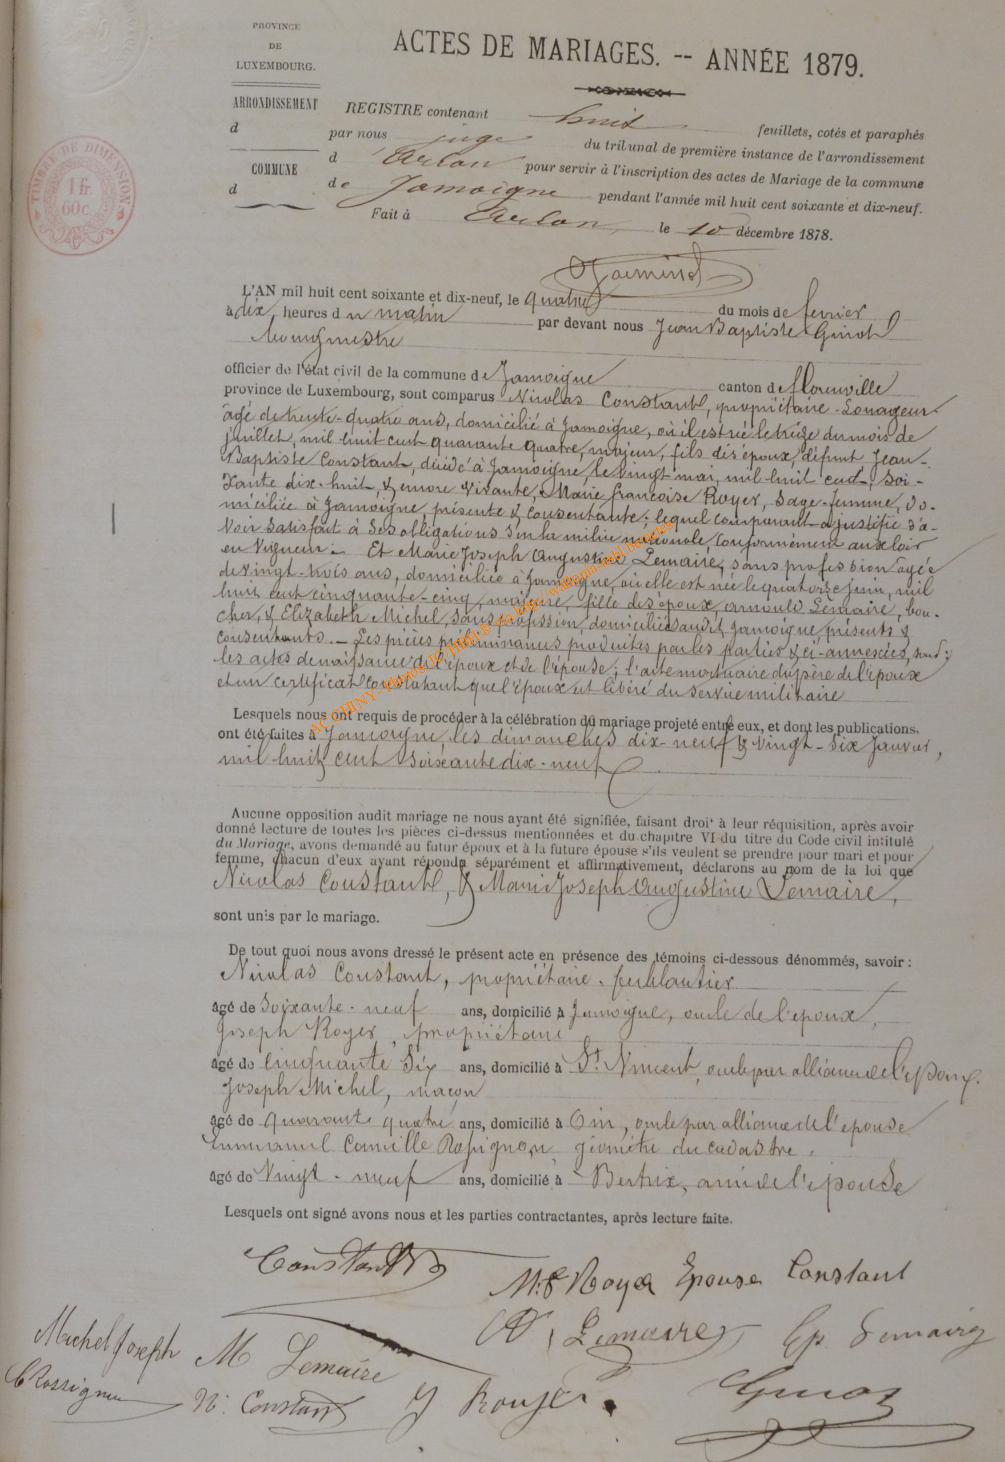 PROVINCE
DE
LUXEMBOURG.
ACTES DE MARIAGES. -- ANNÉE 1879.
ARRONDISSEMENT
d
COMMUNE
d
TIMBRE DE DIMENSION
1 fr.
60c.
REGISTRE contenant huit feuillets, cotés et paraphés
par nous juge du tribunal de première instance de l'arrondissement
d'Arlon pour servir à l'inscription des actes de Mariage de la commune
de Jamoigne pendant l'année mil huit cent soixante et dix-neuf.
Fait à Arlon, le 10 décembre 1878.
L'AN mil huit cent soixante et dix-neuf, le quatre du mois de février
à dix, heures du matin par devant nous Jean Baptiste Guiot
bourgmestre
officier de l'état civil de la commune de Jamoigne canton de florenville
province de Luxembourg, sont comparus Nicolas Constant, propriétaire-
âgé de trente-quatre ans, domicilié à Jamoigne, où il est né le treize du mois de
juillet, mil huit cent quarante quatre, majeur, fils des époux, défunt Jean-
Baptiste Constant, décédé à Jamoigne, le vingt mai, mil huit cent, soi-
xante dix-huit, & encore vivante, Marie françoise Royer, sage-femme, do-
miciliée à Jamoigne, présente & consentante; lequel comparant a justifié d'a-
voir satisfait à ses obligations sur la milice nationale, conformément aux lois
en vigueur.- Et Marie Joseph Augustine Lemaire, sans profession âgée
de vingt-trois ans, domiciliée à Jamoigne, où elle est née le quatorze juin, mil
huit cent cinquante-cinq, majeure, fille des époux, Arnould Lemaire, bou-
cher, & Elizabeth Michel, sans profession, domiciliés audit Jamoigne, présents &
consentants.- Les pièces préliminaires produites par les parties & ci-annexées, sont:
les actes de naissance de l'époux et de l'épouse; l'acte mortuaire du père de l'époux
et un certificat constatant que l'époux est libéré du service militaire
Lesquels nous ont requis de procéder à la célébration du mariage projeté entre eux, et dont les publications.
ont été faites à Jamoigne, les dimanches dix-neuf & vingt-six janvier,
mil huit cent soixante dix-neuf
Aucune opposition audit mariage ne nous ayant été signifiée, faisant droit à leur réquisition, après avoir
donné lecture de toutes les pièces ci-dessus mentionnées et du chapitre VI du titre du Code civil intitulé
du Mariage, avons demandé au futur époux et à la future épouse s'ils veulent se prendre pour mari et pour
femme, chacun d'eux ayant répondu séparément et affirmativement, déclarons au nom de la loi que
Nicolas Constant, & Marie Joseph Augustine Lemaire,
sont unis par le mariage.
De tout quoi nous avons dressé le présent acte en présence des témoins ci-dessous dénommés, savoir :
Nicolas Constant, propriétaire. ferblantier
âgé de soixante-neuf ans, domicilié à Jamoigne, oncle de l'époux,
Joseph Royer, propriétaire
âgé de cinquante six ans, domicilié à St. Vincent, oncle par alliance de l'époux.
Joseph Michel, maçon
âgé de quarante quatre ans, domicilié à Oin, oncle par alliance de l'épouse
Emmanuel Camille Rossignon, géomètre du cadastre,
âgé de vingt-neuf ans, domicilié à Bertrix, ami de l'épouse
Lesquels ont signé avons nous et les parties contractantes, après lecture faite.
Constant
M.F Royer Epouse Constant
Lemaire
Ep. Lemaire
Michel Joseph
M Lemaire
C Rossignon
N. Constant
J Royer.
Guiot